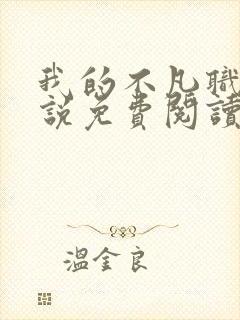 我的不凡職
說免費閱讀
溫金良